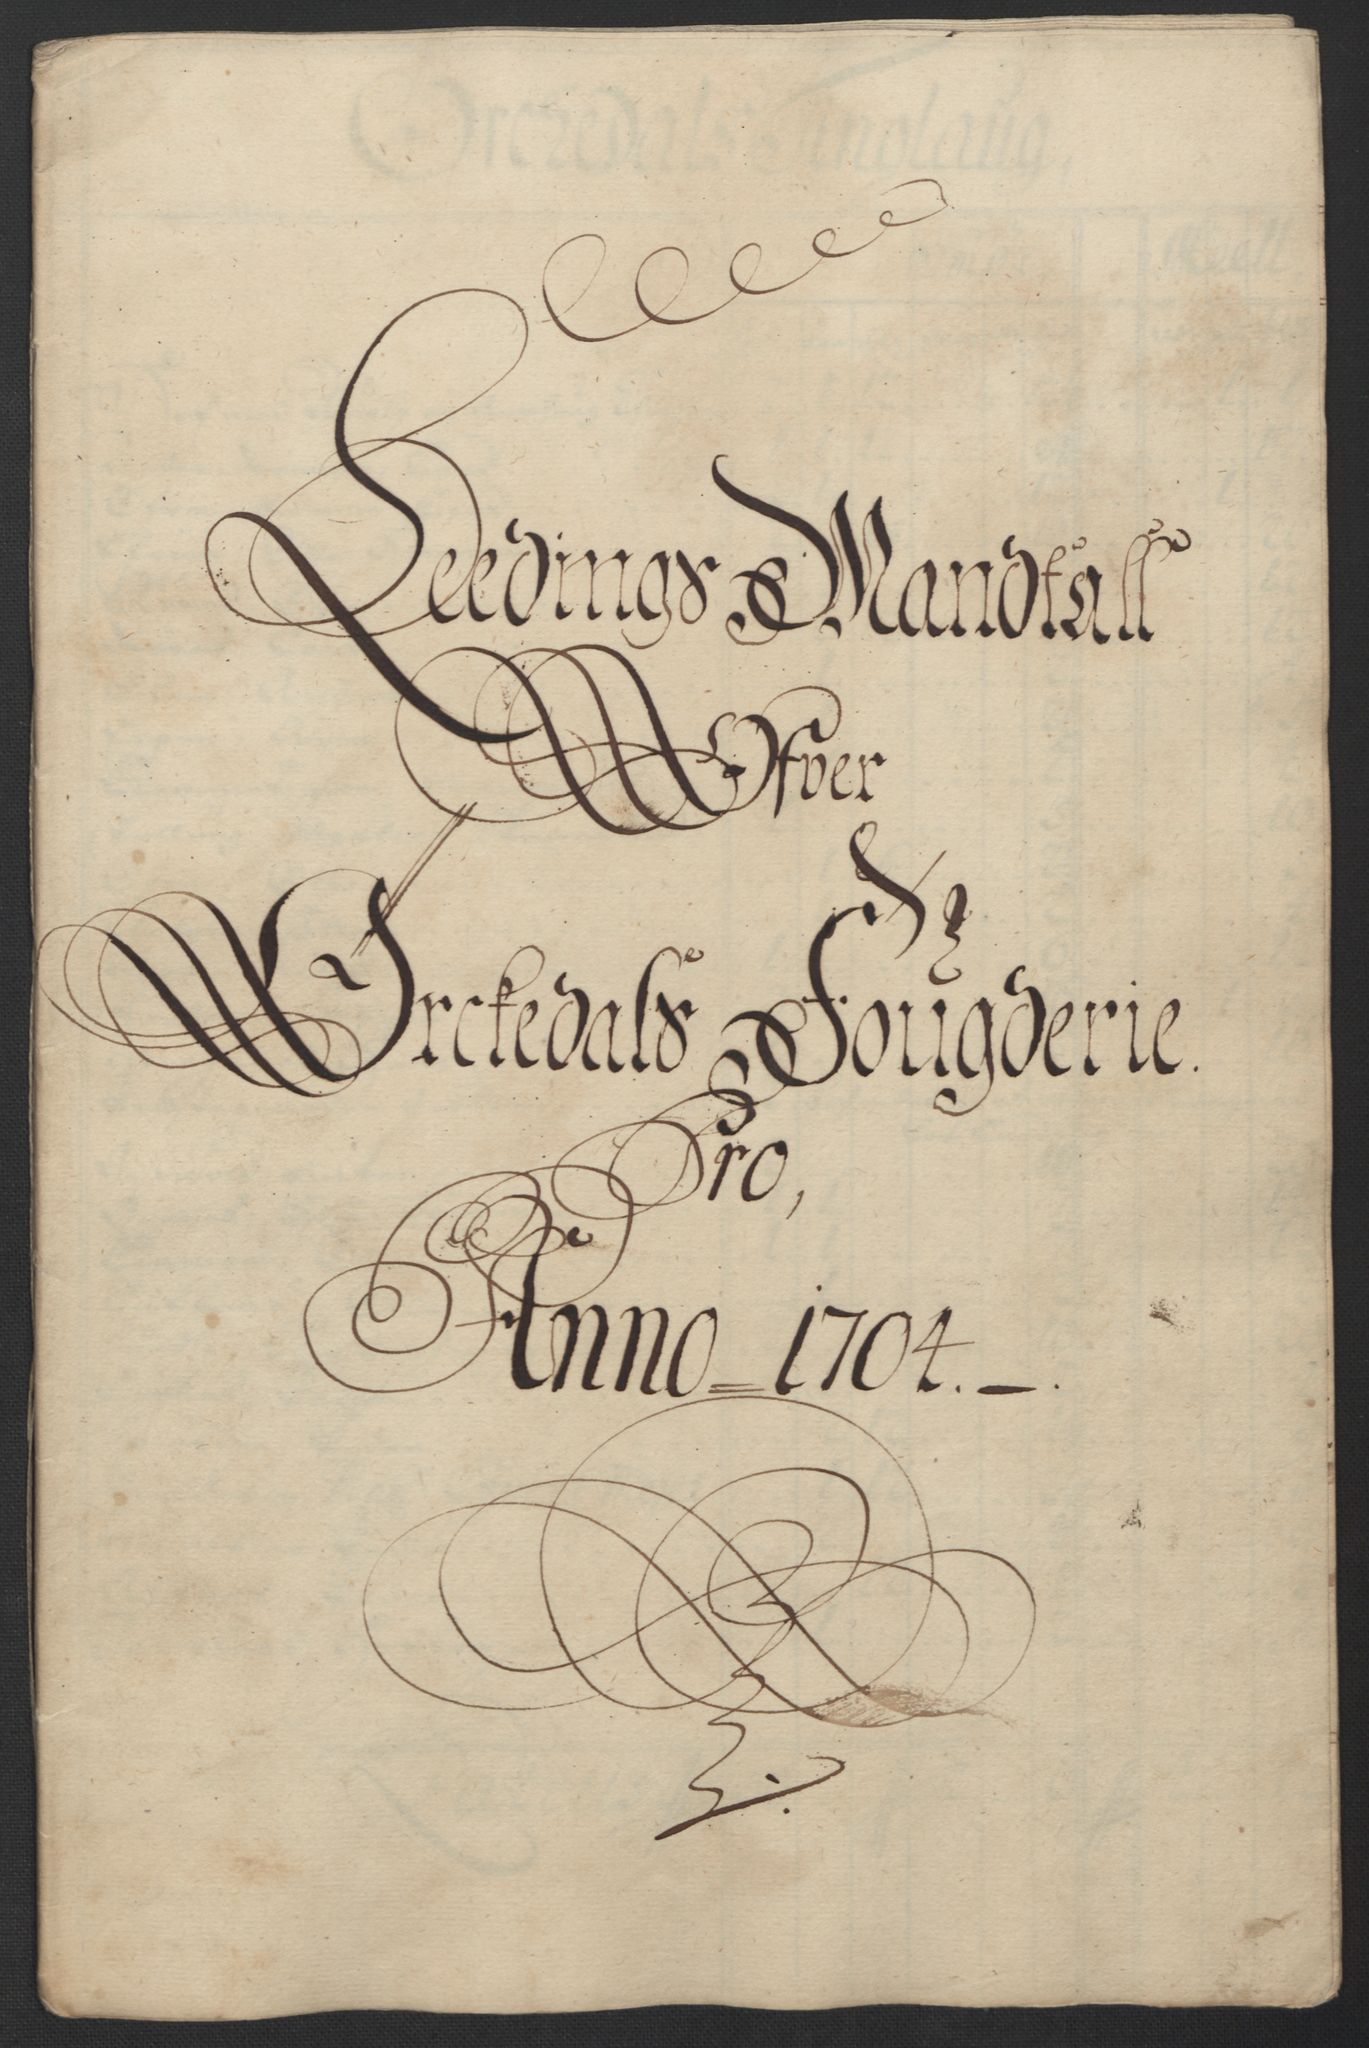 Leedings Mandtall
Ofver
Orckedals Fougderie.
Pro,
Anno = 1704. —.